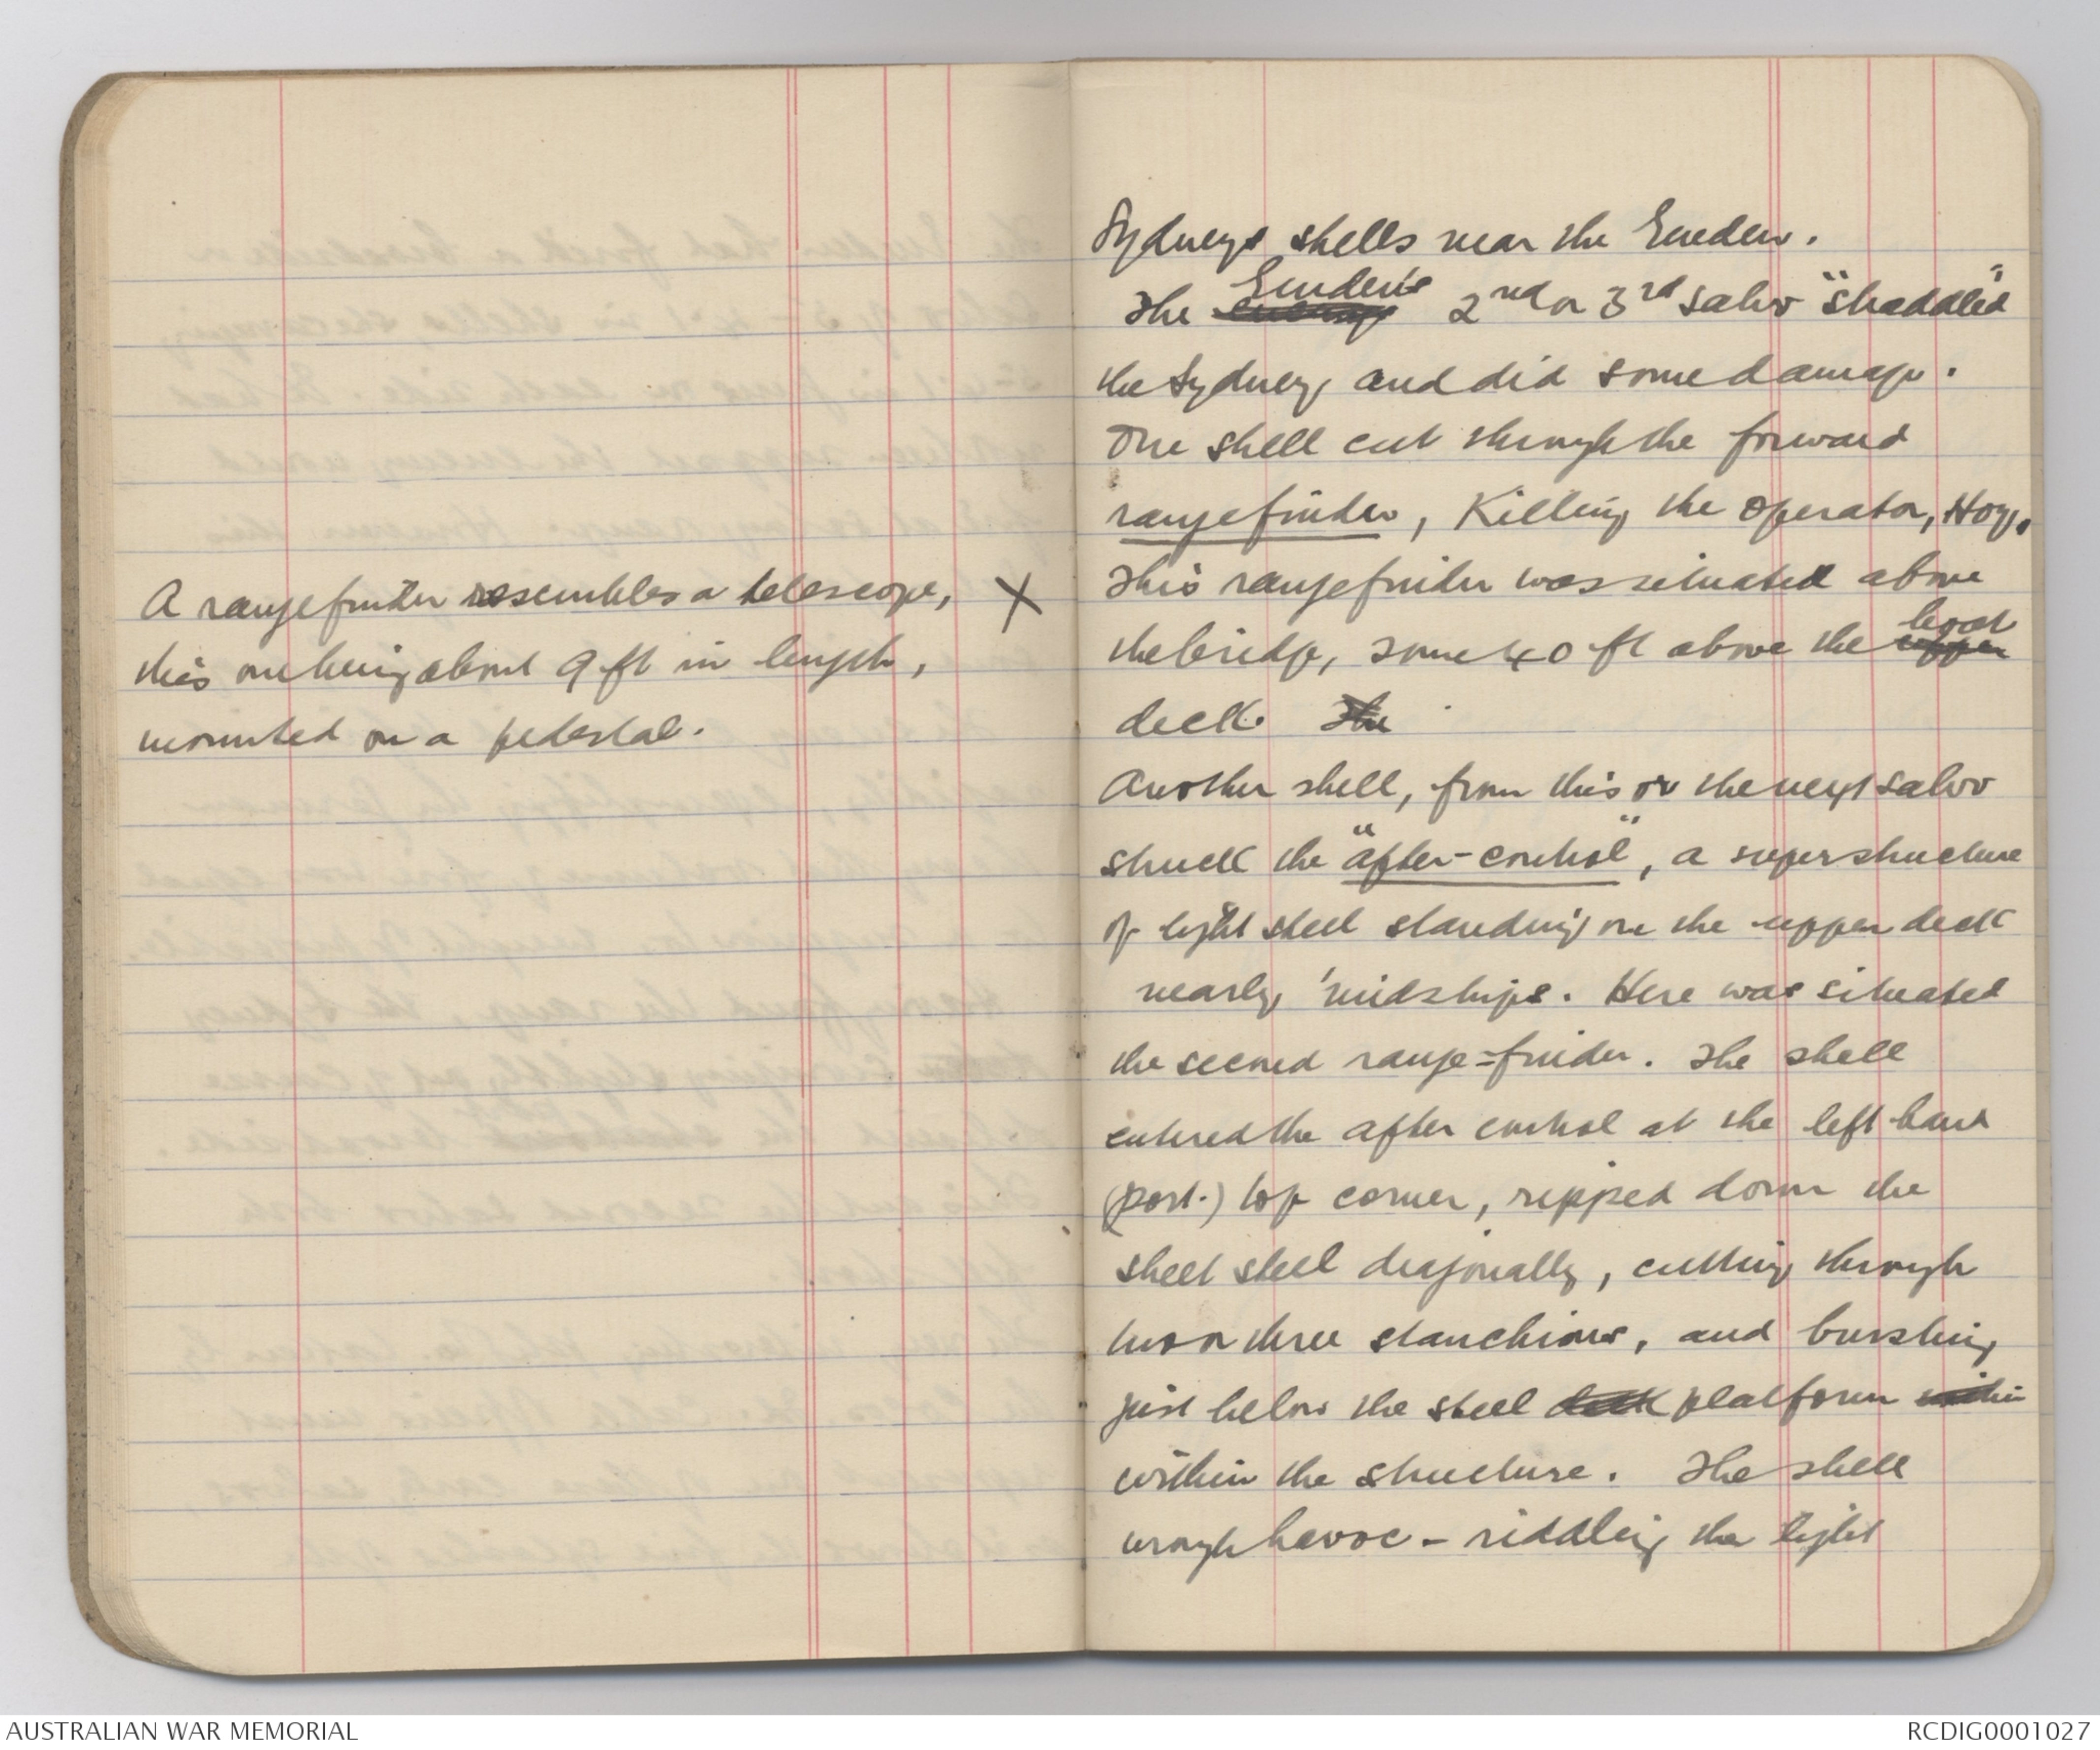 A rangefinder resembles a telescope, X
this one being about 9 ft in length,
mounted on a pedestal.
Sydneys shells near the Emden.
The Emden's 2nd or 3rd salvo "straddled"
the Sydney, and did some damage.
One shell cut through the forward
rangefinder, killing the operator, Hoy.
This rangefinder was situated above
the bridge, some 40 ft above the upper boat
deck. The
Another shell, from this or the next salvo
struck the "after-control", a superstructure
of light steel standing on the upper deck
nearly 'midships. Here was situated
the second range-finder. The shell
entered the after control at the left hand
(port.) top corner, ripped down the
sheet steel diagonally, cutting through
two or three stanchions, and bursting
just below the steel deck platform within
within the structure. The shell
wrough havoc - riddling the light
AUSTRALIAN WAR MEMORIAL
RCDIG0001027